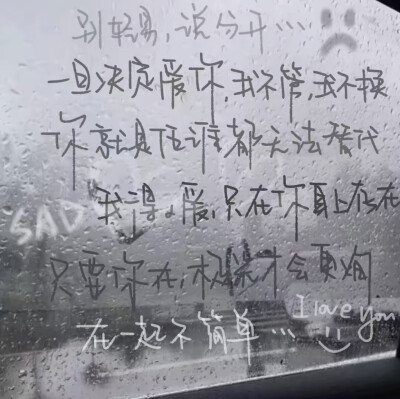 别轻易,说分开…
一旦决定爱你,我不管,我不换
你就是任谁都无法替代
SAD
我得爱,只在你身上存在
只要你在,才会更绚
I love you
在一起不简单…